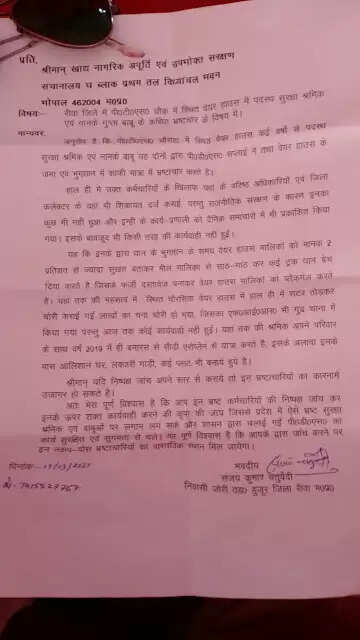 प्रति,
श्रीमान् खाद्य नागरिक अपूर्ति एवं उपभोक्ता सरक्षण
संचानालय घ ब्लाक प्रथम तल विन्ध्याचल भवन
भोपाल 462004 म०प्र०
विषयः- रीवा जिले में पी०डी०एस० चौक में स्थित वेयर हाउस में पदस्थ सुरक्षा श्रमिक
एवं नानक गुप्त बाबू के कथित भ्रष्टाचार के विषय में।
मान्यवर,
अनुरोध है कि पी०डी०एस० चौराहा में स्थित वेयर हाउस कई वर्षो से पदस्थ
सुरक्षा श्रमिक एवं नानक बाबू यह दोनो द्वारा पी०डी०एस० सप्लाई में तथा वेयर हाउस के
जमा एवं भुगतान में काफी मात्रा में भ्रष्टाचार करते है।
हाल ही मे उक्त कर्मचारियों के खिलाफ यहा के वरिष्ठ अधिकारियों एवं जिला
कलेक्टर के यहा भी शिकायत दर्ज कराई परन्तु राजनैतिक संरक्षण के कारण इनका
कुछ भी नही हुआ और इन्ही के कार्य प्रणाली को दैनिक समाचारो में भी प्रकाशित किया
गया। इसके बावजूद भी किसी तरह की कार्यवाही नही हुई।
यह कि इनके द्वारा धान के भुगतान के समय वेयर हाउस मालिको को मानक 2
प्रतिशत से ज्यादा सुखत बताकर मील मालिको से साठ-गाठ कर कई ट्रक धान बेच
दिया करते है जिसके फर्जी दस्तावेज बनाकर वेयर हाउस मालिको को ब्लैकमेल करते
है। यहा तक की महसांव में स्थित चोरसिया वेयर हाउस में हाल ही में शटर तोड़कर
चोरी कराई गई लाखों का चना चोरी हो गया, जिसका एफ०आई०आर० भी गुढ़ थाना में
किया गया परन्तु आज तक कोई कार्यवाही नही हुई। यहा तक की श्रमिक अपने परिवार
के साथ वर्ष 2019 में ही बनारस से सीढी एरोप्लेन में यात्रा करते है, इसके अलावा इनके
पास आलिशान घर, लकजरी गाडी, कई प्लाट भी बनाये हुये है।
श्रीमान् यदि निष्पक्ष जॉच अपने स्तर से कराये तो इन भ्रष्टाचारियों का कारनामे
उजागर हो सकते है।
अतः मेरा पूर्ण विश्वास है कि आप इन भ्रष्ट कर्मचारियों की निष्पक्ष जांच कर
इनके ऊपर शक्त कार्यवाही करने की कृपा की जाए जिससे प्रदेश में ऐसे भ्रष्ट सुरक्षा
श्रमिक एवं बाबुओं पर लगाम लग सके और शासन द्वारा चलाई गई पी०डी०एस० का
कार्य सुरक्षित एवं सुगमता से चले। यह पूर्ण विश्वास है कि आपके द्वारा जॉच करने पर
इन भ्रष्टाचारियों का वास्तविक स्थान मिल जायेगा।
दिनांक:-
भवदीय
संजय कुमार चतुर्वेदी
निवासी जोरी तह० हुजूर जिला रीवा म०प्र०